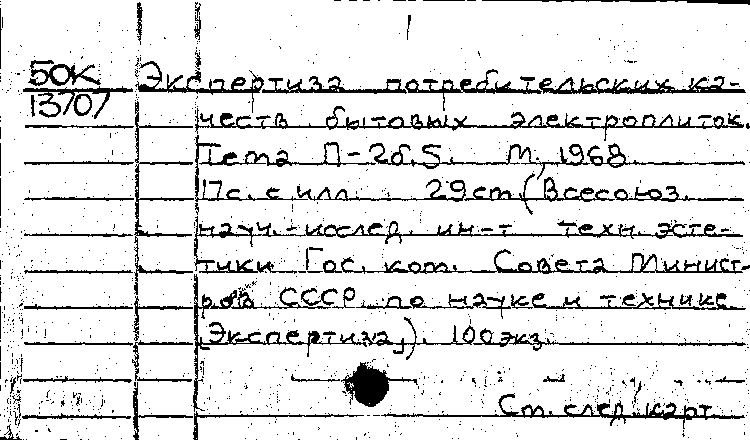 50К Экспертиза потребительских ка-
13707 честв бытовых электроплиток.
Тема П-2б.5. М, 1968.
17с. с илл. 29см. (Всесоюз.
науч.-исслед. ин-т техн. эсте-
тики Гос. ком. Совета Минист-
ров СССР по науке и технике
[Экспертиза]). 100экз.
См. след. карт.